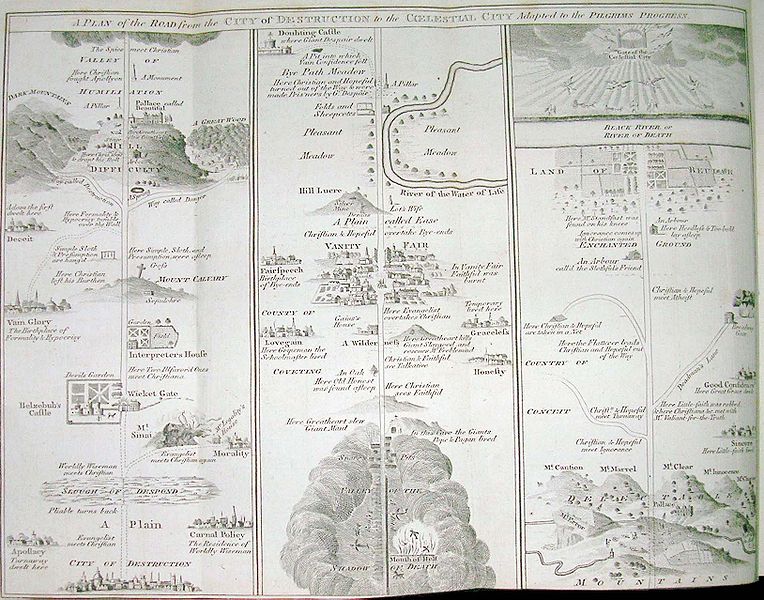 A PLAN of the ROAD from the CITY of DESTRUCTION to the CŒLESTIAL CITY Adapted to the PILGRIMS PROGRESS.
The Spies meet Christian
VALLEY OF
Here Christian
fought Apollyon
A Monument
HUMILIATION
DARK MOUNTAINS
A Pillar
Pallace called
Beautiful
A GREAT WOOD
HILL
DIFFICULTY
Way called Destruction
Way called Danger
Adam the first
dwelt here
Deceit
Here Formality &
Hypocrisy tumble
over the Wall
Simple Sloth
& Presumption
are hang'd
Here Simple, Sloth, and
Presumption were asleep
Cross
Here Christian
left his Burthen
MOUNT CALVARY
Sepulchre
Vain Glory
The Birthplace of
Formality & Hypocrisy
Garden
Field
Interpreters House
Devils Garden
Here Two Ill favor'd Ones
meet Christiana
Belzebub's
Castle
Wicket Gate
Mt.
Sinai
Mr. Legality's
House
Evangelist
meets Christian again
Morality
Worldly Wiseman
meets Christian
SLOUGH OF DESPOND
Pliable turns back
A Plain
Evangelist
meets Christian
Carnal Policy
The Residence of
Worldly Wiseman
Apostacy
Turnaway
dwelt here
CITY OF DESTRUCTION
Doubting Castle
where Giant Despair dwelt
A Pit into which
Vain Confidence fell
Bye Path Meadow
Here Christian and Hopeful
turned out of the Way & were
made Pris'ners by Gt. Despair
A Pillar
Folds and
Sheepcotes
Pleasant
Meadow
Pleasant
Meadow
River of the Water of Life
Hill Lucre
Silver
Mine
Demas
Lot's Wife
A Plain called Ease
Christian & Hopeful overtake Bye-ends
VANITY FAIR
Fairspeech
Birthplace
of Bye-ends
In Vanity Fair
Faithful was
burnt
COUNTY OF
Gaius's
House
Here Evangelist
overtakes Christian
Temporary
lived here
Graceless
Lovegain
Here Gripeman the
Schoolmaster lived
A Wilderness
Here Greatheart kills
Giant Slaygood, and
rescues Mr. Feeblemind
Christian & Faithful
see Talkative
Honesty
COVETING
An Oak
Here Old Honest
was found asleep
Here Christian
sees Faithful
Here Greatheart slew
Giant Maul
In this Cave the Giants
Pope & Pagan lived
Snares Pits
VALLEY OF THE
Mouth of Hell
SHADOW OF DEATH
Gate of the
Cœlestial City
BLACK RIVER or
RIVER OF DEATH
LAND OF BEULAH
Here Mr. Standfast was
found on his knees
An Arbour
Here Heedless & Too-bold
lay asleep
Ignorance comes up
with Christian again
ENCHANTED GROUND
An Arbour
call'd the Slothfuls Friend
Christian & Hopeful
meet Atheist
Here Christian & Hopeful
are taken in a Net
Here the Flatterer leads
Christian and Hopeful out
of the Way
COUNTRY OF
Deadman's Lane
Good Confidence
Here Great Grace dwelt
CONCEIT
Christn. & Hopeful
meet Turnaway
Here Little-faith was robbed
& here Christiana &c. met with
Mr. Valiant-for-the-Truth
Christian & Hopeful
meet Ignorance
Sincere
Here Little-faith lived
Mt. Caution
Mt. Marvel
Mt. Clear
Mt. Innocence
DELECTABLE
Pallace
Mt. Error
MOUNTAINS